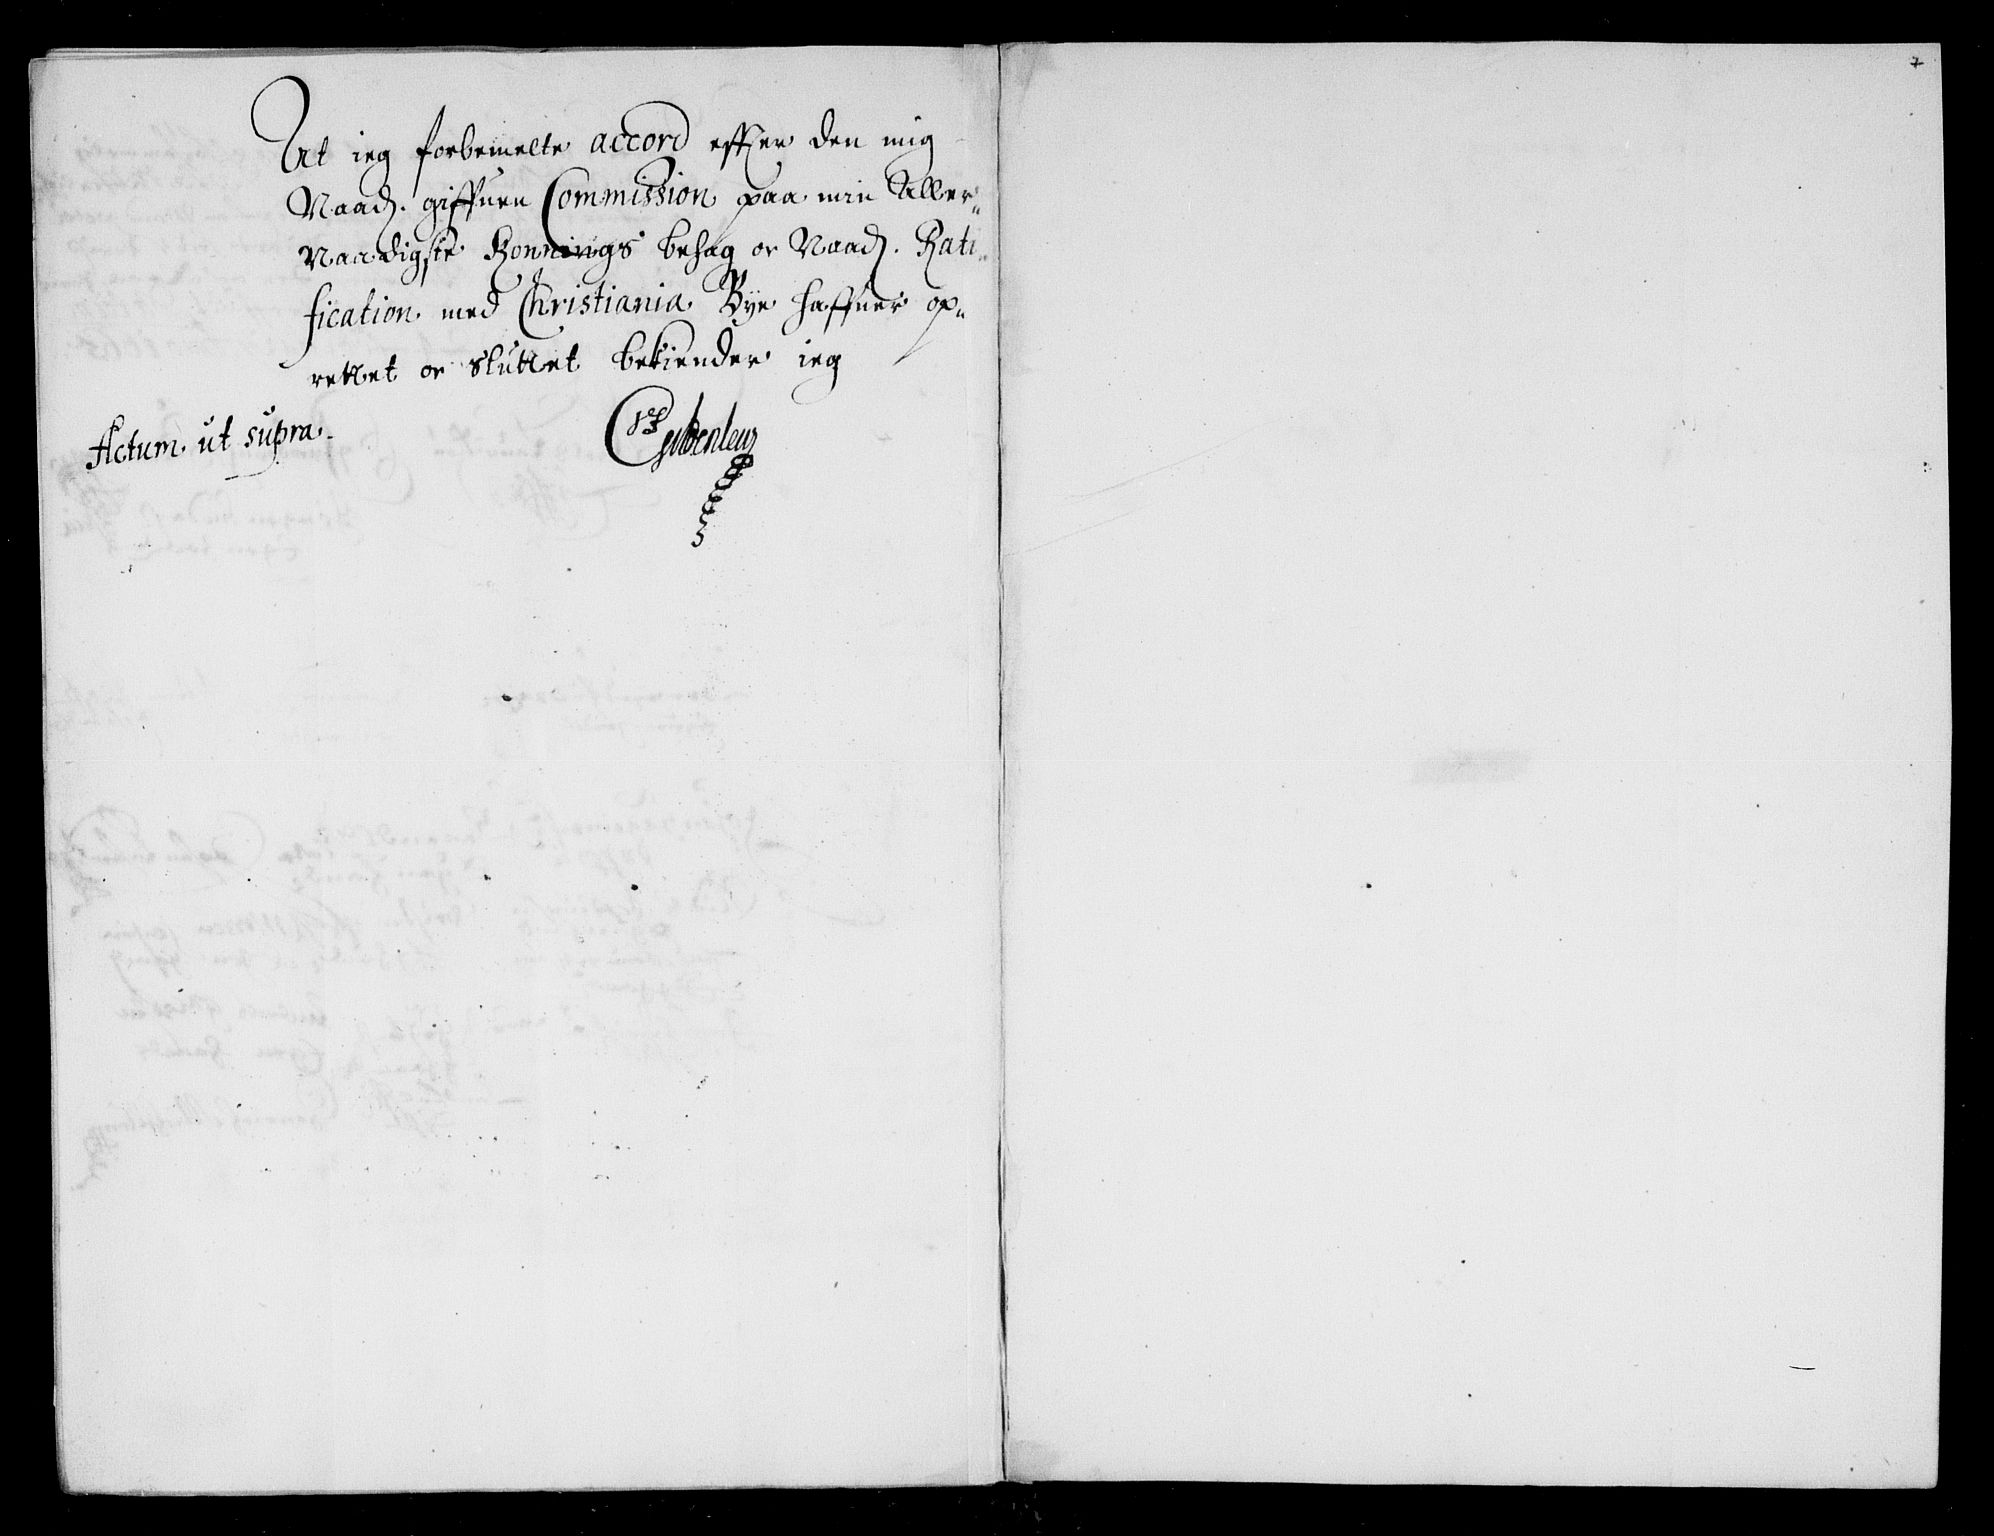 At ieg forbemelte accord effter den mig
Naad. giffuen Commission paa min Aller„
Naadigste Konnings behag oc Naad. Rati„
fication med Christiania Bye haffuer op„
rettet oc sluttet bekiender ieg
Actum ut supra.
Gyldenleu
7